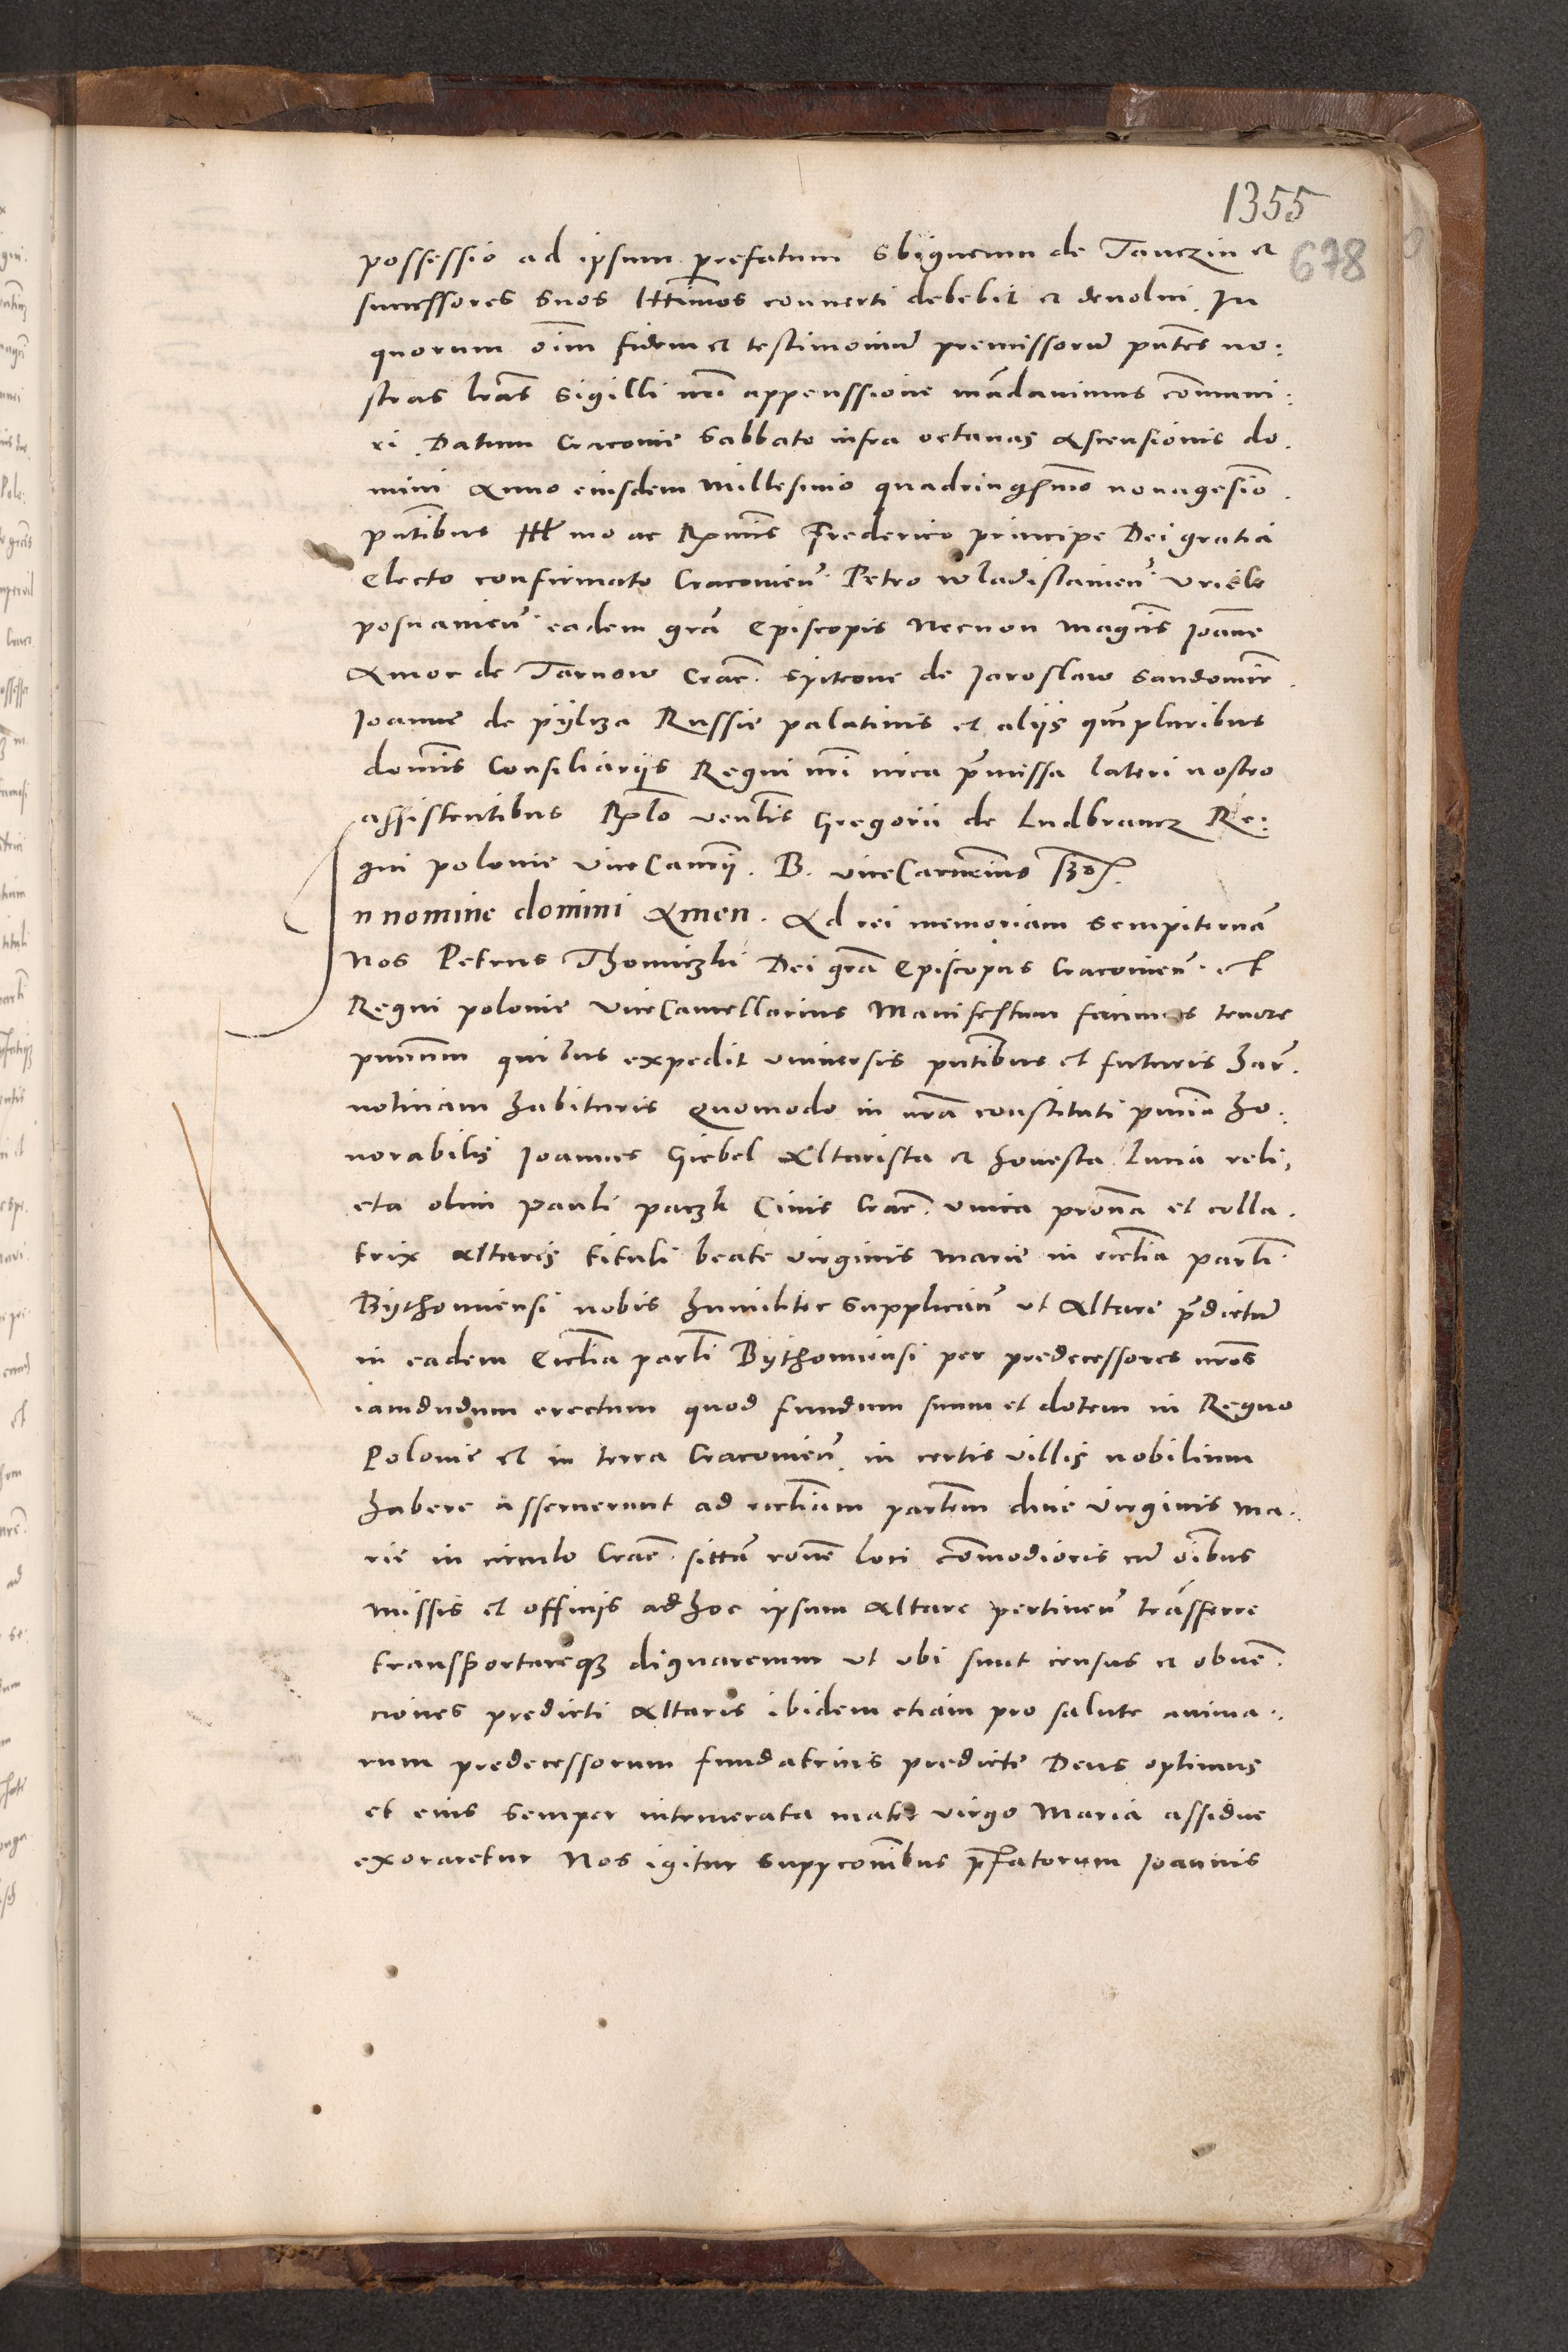 1355
678
possessio ad ipsum prefatum Sbigneum de Tanczin et
successores suos lttimos conuerti debebit et deuolui. In
quorum oim fidem et testimoniu premissoru pntes no:
stras lras sigilli nri appenssione madauimus comuni:
ri. Datum Cracouie Sabbato infra octauas Ascensionis do.
mini Anno eiusdem Millesimo quadringesimo nonagesimo.
pntibus Illmo ac Rmis Frederico principe Dei gratia
Electo confirmato Cracouien. Petro wladislauien. Vriele
posnanien. eadem gra Episcopis Necnon Magcis Joane
Amor de Tarnow Crac. Spitcone de Jaroslaw Sandomir.
Joanne de pijlcza Russie palatinis et alijs qmpluribus
domis Consiliarijs Regni nri circa pmissa lateri nostro
assistentibus Rlo venlis Gregorii de Ludbrancz Re:
gni polonie ViceCancrij. B. viceCancrius sst.
In nomine domini Amen. Ad rei memoriam sempiterna
Nos Petrus Thomiczki Dei gra Episcopus Cracouien. et
Regni polonie ViceCancellarius Manifestum facimus tenore
pntium quibus expedit vniuersis pntibus et futuris har.
notitiam habituris Quomodo in nra constituti pntia ho:
norabilis Joannes Giebel Altarista et honesta Lucia reli,
cta olim Pauli paczk Ciuis Crac. vnica prona et colla.
trix altaris tituli beate virginis marie in ecclia parli
Bythomiensi nobis humiliter supplicarut ut Altare pdictu
in eadem Ecclia parli Bythomiensi per predecessores nros
iamdudum erectum quod fundum suum et dotem in Regno
Polonie et in terra Cracouien. in certis villis nobilium
habere asseruerunt ad eccliam parlem diue virginis ma.
rie in circulo Crac. sitta rone loci comodioris cu oibus
missis et officijs ad hoc ipsum altare pertinen trasferre
transportareq dignaremur ut vbi sunt census et obuen.
ciones predicti altaris ibidem etiam pro salute anima.
rum predecessorum fundatricis predicte Deus optimus
et eius semper intemerata mater virgo Maria assidue
exoraretur Nos igitur suppconibus pfatorum Joannis